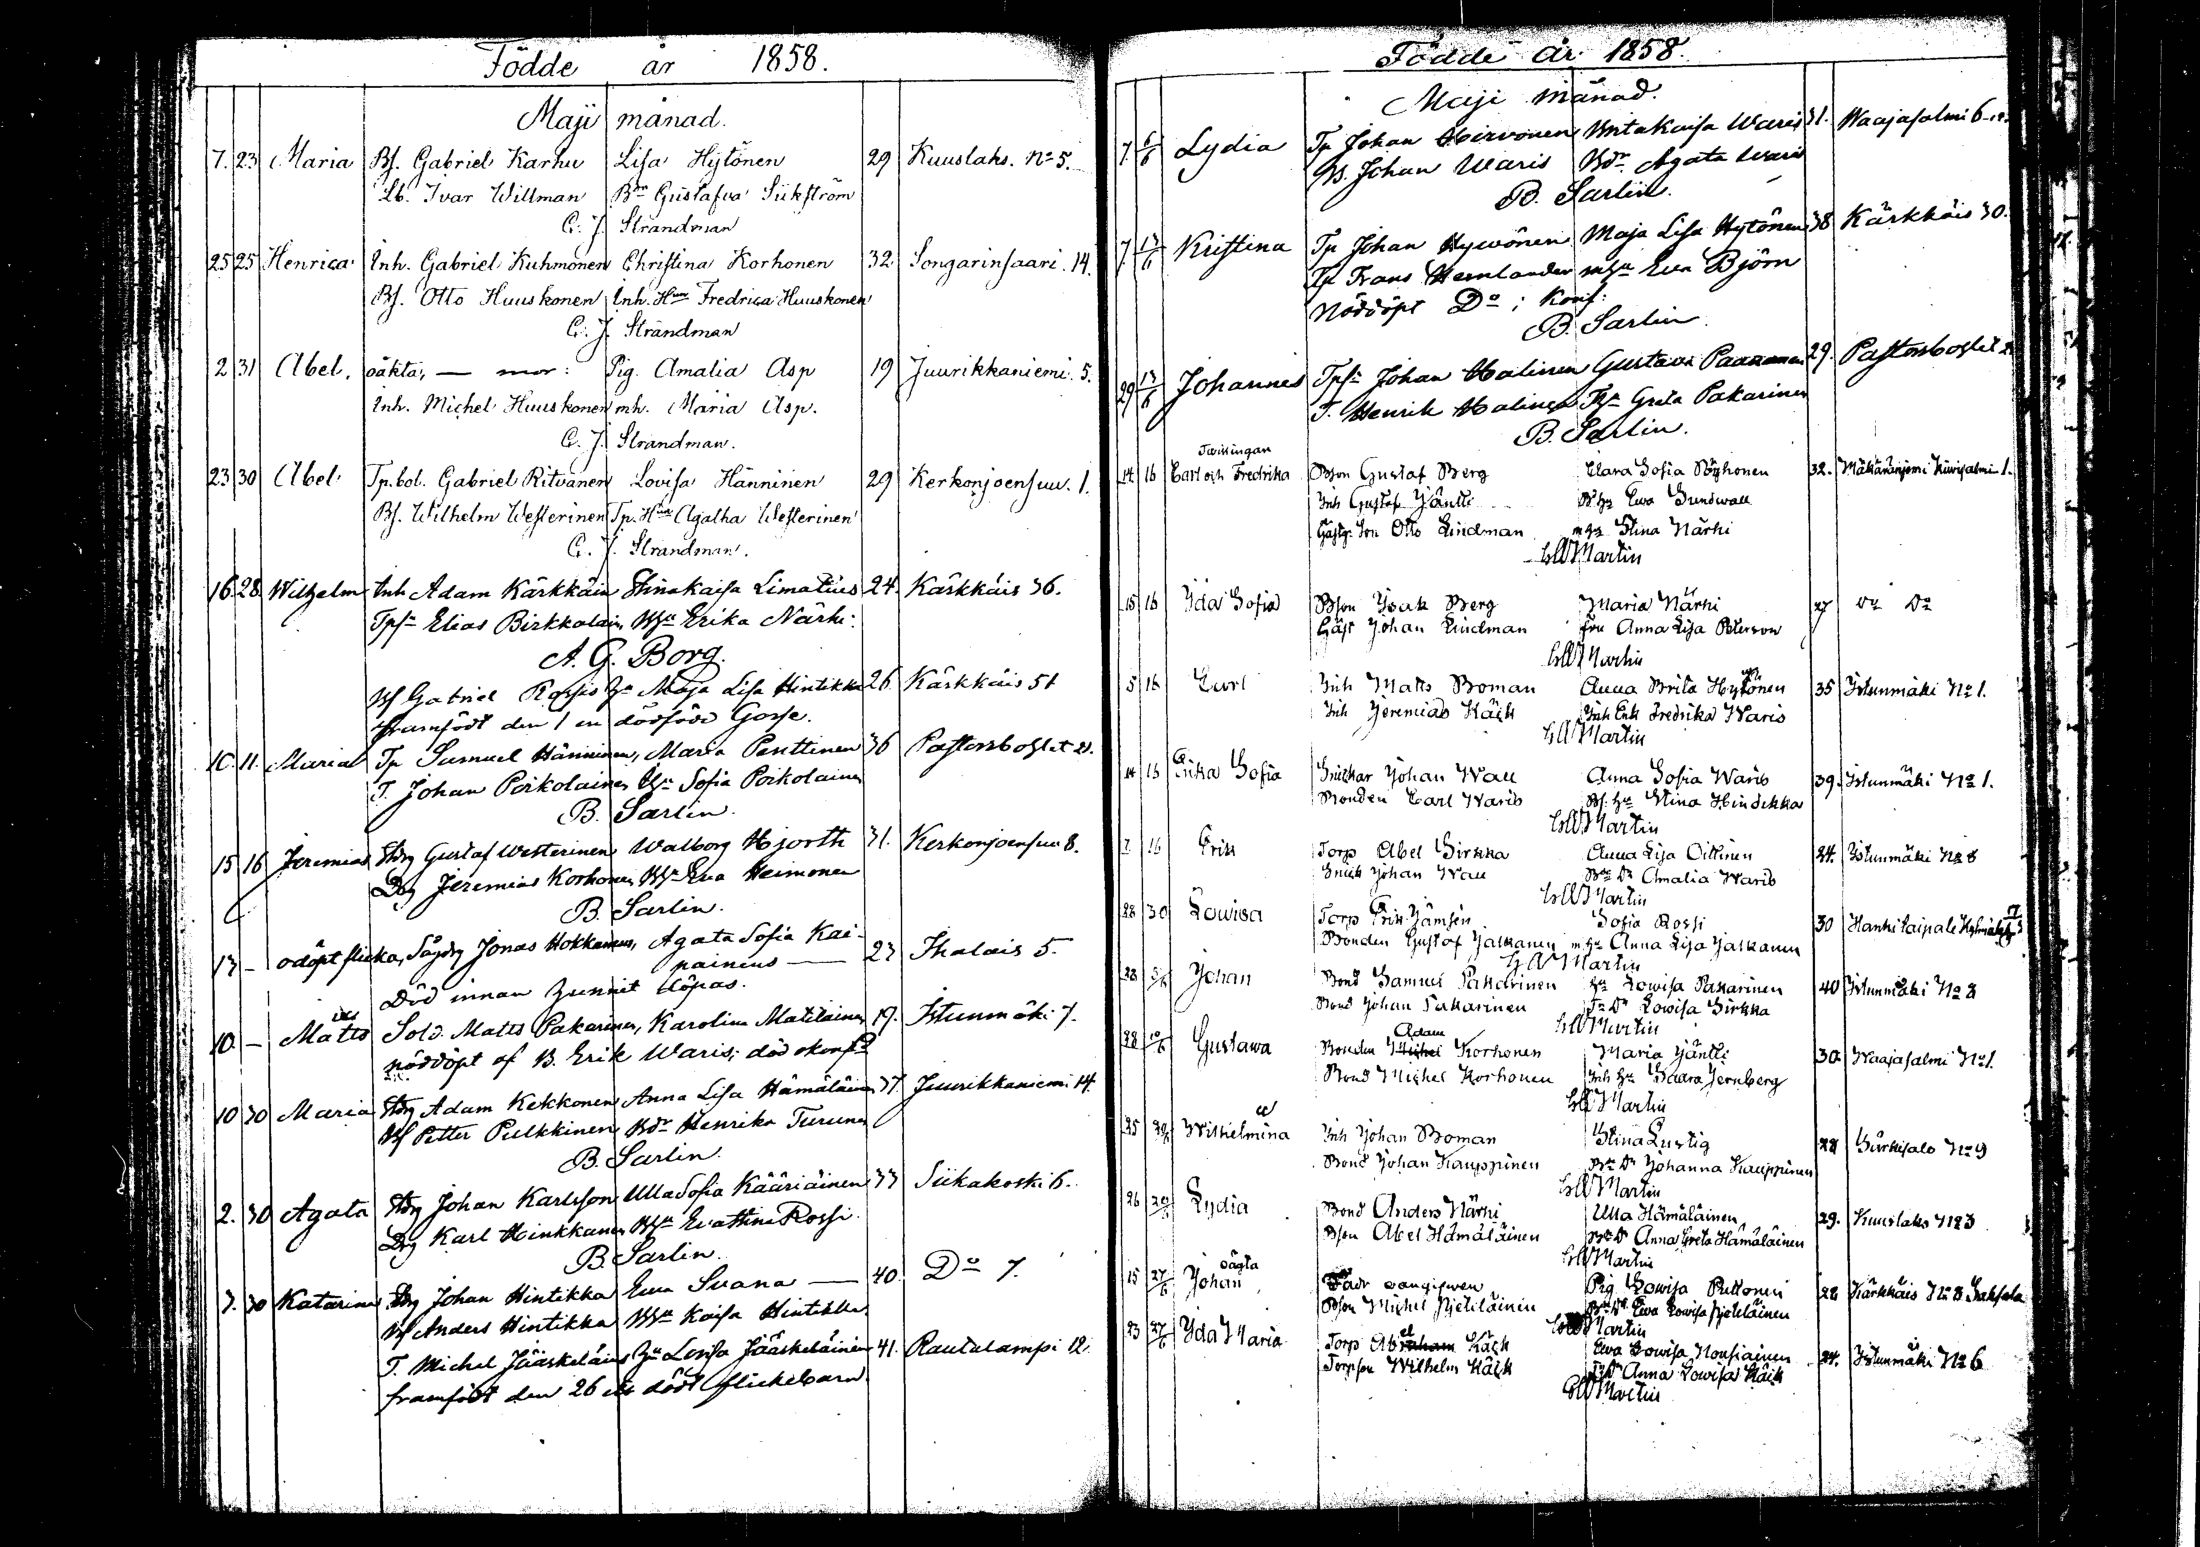 Födde år 1858.
Maji månad.
7. 23 Maria Bf. Gabriel Karhu Lisa Hytönen 29 Kuuslaks. No 5.
Lb. Ivar Willman Bdr Gustafva Siikström
C. J. Strandman
25 25 Henrica Inh. Gabriel Kuhmonen Christina Korhonen 32 Songarinsaari. 14.
Bf. Otto Huuskonen Inh. Hun Fredrica Huuskonen
C. J. Strandman
2 31 Abel. oäkta, — mor: Pig. Amalia Asp 19 Juurikkaniemi. 5.
Inh. Michel Huuskonen mh. Maria Asp.
C. J. Strandman.
23 30 Abel Tp.bol. Gabriel Ritvanen Lovisa Hänninen 29 Kerkonjoensuu. 1.
Bf. Wilhelm Westerinen Tp. Hun Agatha Westerinen
C. J. Strandman.
16. 28. Wilhelm Inh Adam Kärkkäin Stinakaisa Limatius 24. Kärkkäis 36.
Tpsn Elias Birkkalain, Erika Närhi
A. G. Borg.
Gabriel Rossis Maja Lisa Hintikka 26 Kärkkäis 51
framfödt den 1 en dödföd Gosse.
10. 11. Maria Tp Samuel Hänninen, Maria Penttinen 36 Pastorsbostet 21.
T. Johan Poikolainen Sofia Poikolainen
B. Sarlin.
15 16 Jeremias Gustaf Westerinen Walborg Hjorth 31. Kerkonjoensuu 8.
Jeremias Korhonen Eva Heimonen
B. Sarlin.
13 — odöpt flicka, Jonas Hokkanens, Agata Sofia Kai-
painens — 23 Ihalais 5.
Död innan hunnit döpas.
10. — Matts Sold. Matts Pakarinen, Karolina Matilainen 19. Istunmäki 7.
nöddöpt af B. Erik Waris; död
10 30 Maria Adam Kekkonen Anna Lisa Hämäläinen 37 Juurikkaniemi 14
Petter Pulkkinen Bdr Henrika Turunen
B. Sarlin.
2. 30 Agata Johan Karlsson Ulla Sofia Kääriäinen 33 Siikakoski 6.
Karl Hinkkanen Evastina Rossi
B. Sarlin.
3. 30 Katarina Johan Hintikka Eva Svana — 40. Do 7.
Anders Hintikka Kaisa Hintikka
T. Michel Jääskeläins Lovisa Jääskeläinen 41. Rautalampi 12.
framfödt den 26 ett dödt flickebarn
Födde år 1858.
Maji månad.
7. 6/6 Lydia Tp Johan Hirvonen Britakaisa Waris 31. Waajasalmi 6
B. Johan Waris Bdr Agata Waris
B. Sarlin.
7 13/6 Kristina Tp Johan Hyvönen Maja Lisa Hytönen 38 Kärkkäis 30.
Tp Frans Hernlander Eva Björn
Nöddöpt Do; Konf:
B. Sarlin.
29 13/6 Johannes Tpsn Johan Halinen Gustava Paananen 29. Pastorsbostet
T. Henrik Halinen Greta Pakarinen
B. Sarlin.
Tvillingar
14 16 Carl och Fredrika Bson Gustaf Berg Clara Sofia Pöyhonen 32. Kivisalmi 1.
Inh Gustaf Jäntti Ewa Sundwall
Gästg. Son Otto Lindman Stina Närhi
Martin
15 16 Ida Sofia Bson Isak Berg Maria Närhi 27 Do Do
Gäst Johan Lindman Fru Anna Lisa Peterson
Martin
5 16 Carl Inh Matts Boman Anna Brita Hytönen 35 Istunmäki No 1.
Inh Jeremias Käck Inh Enk Fredrika Waris
Martin
14 16 Erika Sofia Snickar Johan Wall Anna Sofia Waris 39. Istunmäki No 1.
Bonden Carl Waris Stina Hindikka
Martin
7 16 Erik Torp Abel Sirkka Anna Lisa Oittinen 24. Istunmäki No 8
Snick Johan Wall Amalia Waris
Martin
28 30 Lowisa Torp Erik Jämsén Sofia Rossi 30 Hankitaipale
Bonden Gustaf Jalkanen Anna Lisa Jalkanen
Martin
28 Johan Bond Samuel Pakarinen Lowisa Pakarinen 40 Istunmäki No 8
Bond Johan Pakarinen Lowisa Sirkka
Martin
28 Gustawa Bonden Adam Korhonen Maria Jäntti 30. Waajasalmi No 1.
Bond Michel Korhonen Inh Saara Jernberg
Martin
25 Wilhelmina Inh Johan Boman Stina Lustig 28 Särkisalo No 9
Bond Johan Kauppinen Johanna Kauppinen
Martin
26 Lydia Bond Anders Närhi Ulla Hämäläinen 29. Kuuslaks No 3
Bson Abel Hämäläinen Anna Greta Hämäläinen
Martin
oägta
15 27/6 Johan Fadr oangifwen Pig. Lowisa Puttonen 28 Kärkkäis No 8
Bson Michel Pjetiläinen Ewa Lowisa Pjetiläinen
Martin
23 27/6 Ida Maria Torp Abel Käck Ewa Lowisa Nousiainen 24. Istunmäki No 6
Torpson Wilhelm Käck Anna Lowisa Käck
Martin